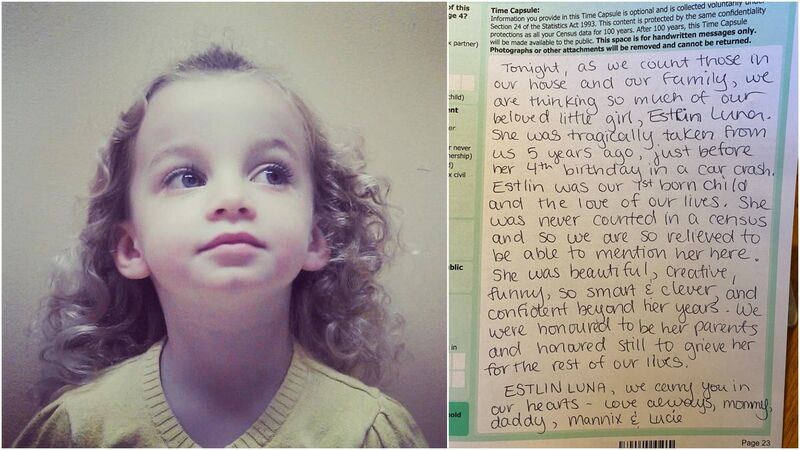 of this
ge 4?
x partner)
child)
ent
er
r never
nership)
x civil
blic
in
hold
Time Capsule:
Information you provide in this Time Capsule is optional and is collected voluntarily under
Section 24 of the Statistics Act 1993. This content is protected by the same confidentiality
protections as all your Census data for 100 years. After 100 years, this Time Capsule
will be made available to the public. This space is for handwritten messages only.
Photographs or other attachments will be removed and cannot be returned.
Tonight, as we count those in
our house and our family, we
are thinking so much of our
beloved little girl, Estlin Luna.
She was tragically taken from
us 5 years ago, just before
her 4th birthday in a car crash.
Estlin was our 1st born child
and the love of our lives. She
was never counted in a census
and so we are so relieved to
be able to mention her here.
She was beautiful, creative,
funny, so smart & clever, and
confident beyond her years. We
were honoured to be her parents
and honoured still to grieve her
for the rest of our lives.
ESTLIN LUNA, we carry you in
our hearts - love always, mommy,
daddy, mannix & Lucie
Page 23